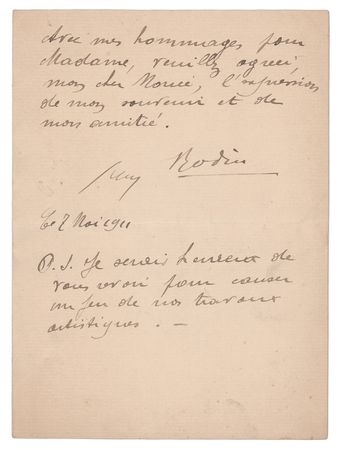 Avec mes hommages pour
Madame, veuillez agréer,
mon cher Monsieur, l'expression
de mon souvenir et de
mon amitié.
Rodin
Le 7 Mai 1911
P. S. Je serais heureux de
vous revoir pour causer
un peu de nos travaux
artistiques. —